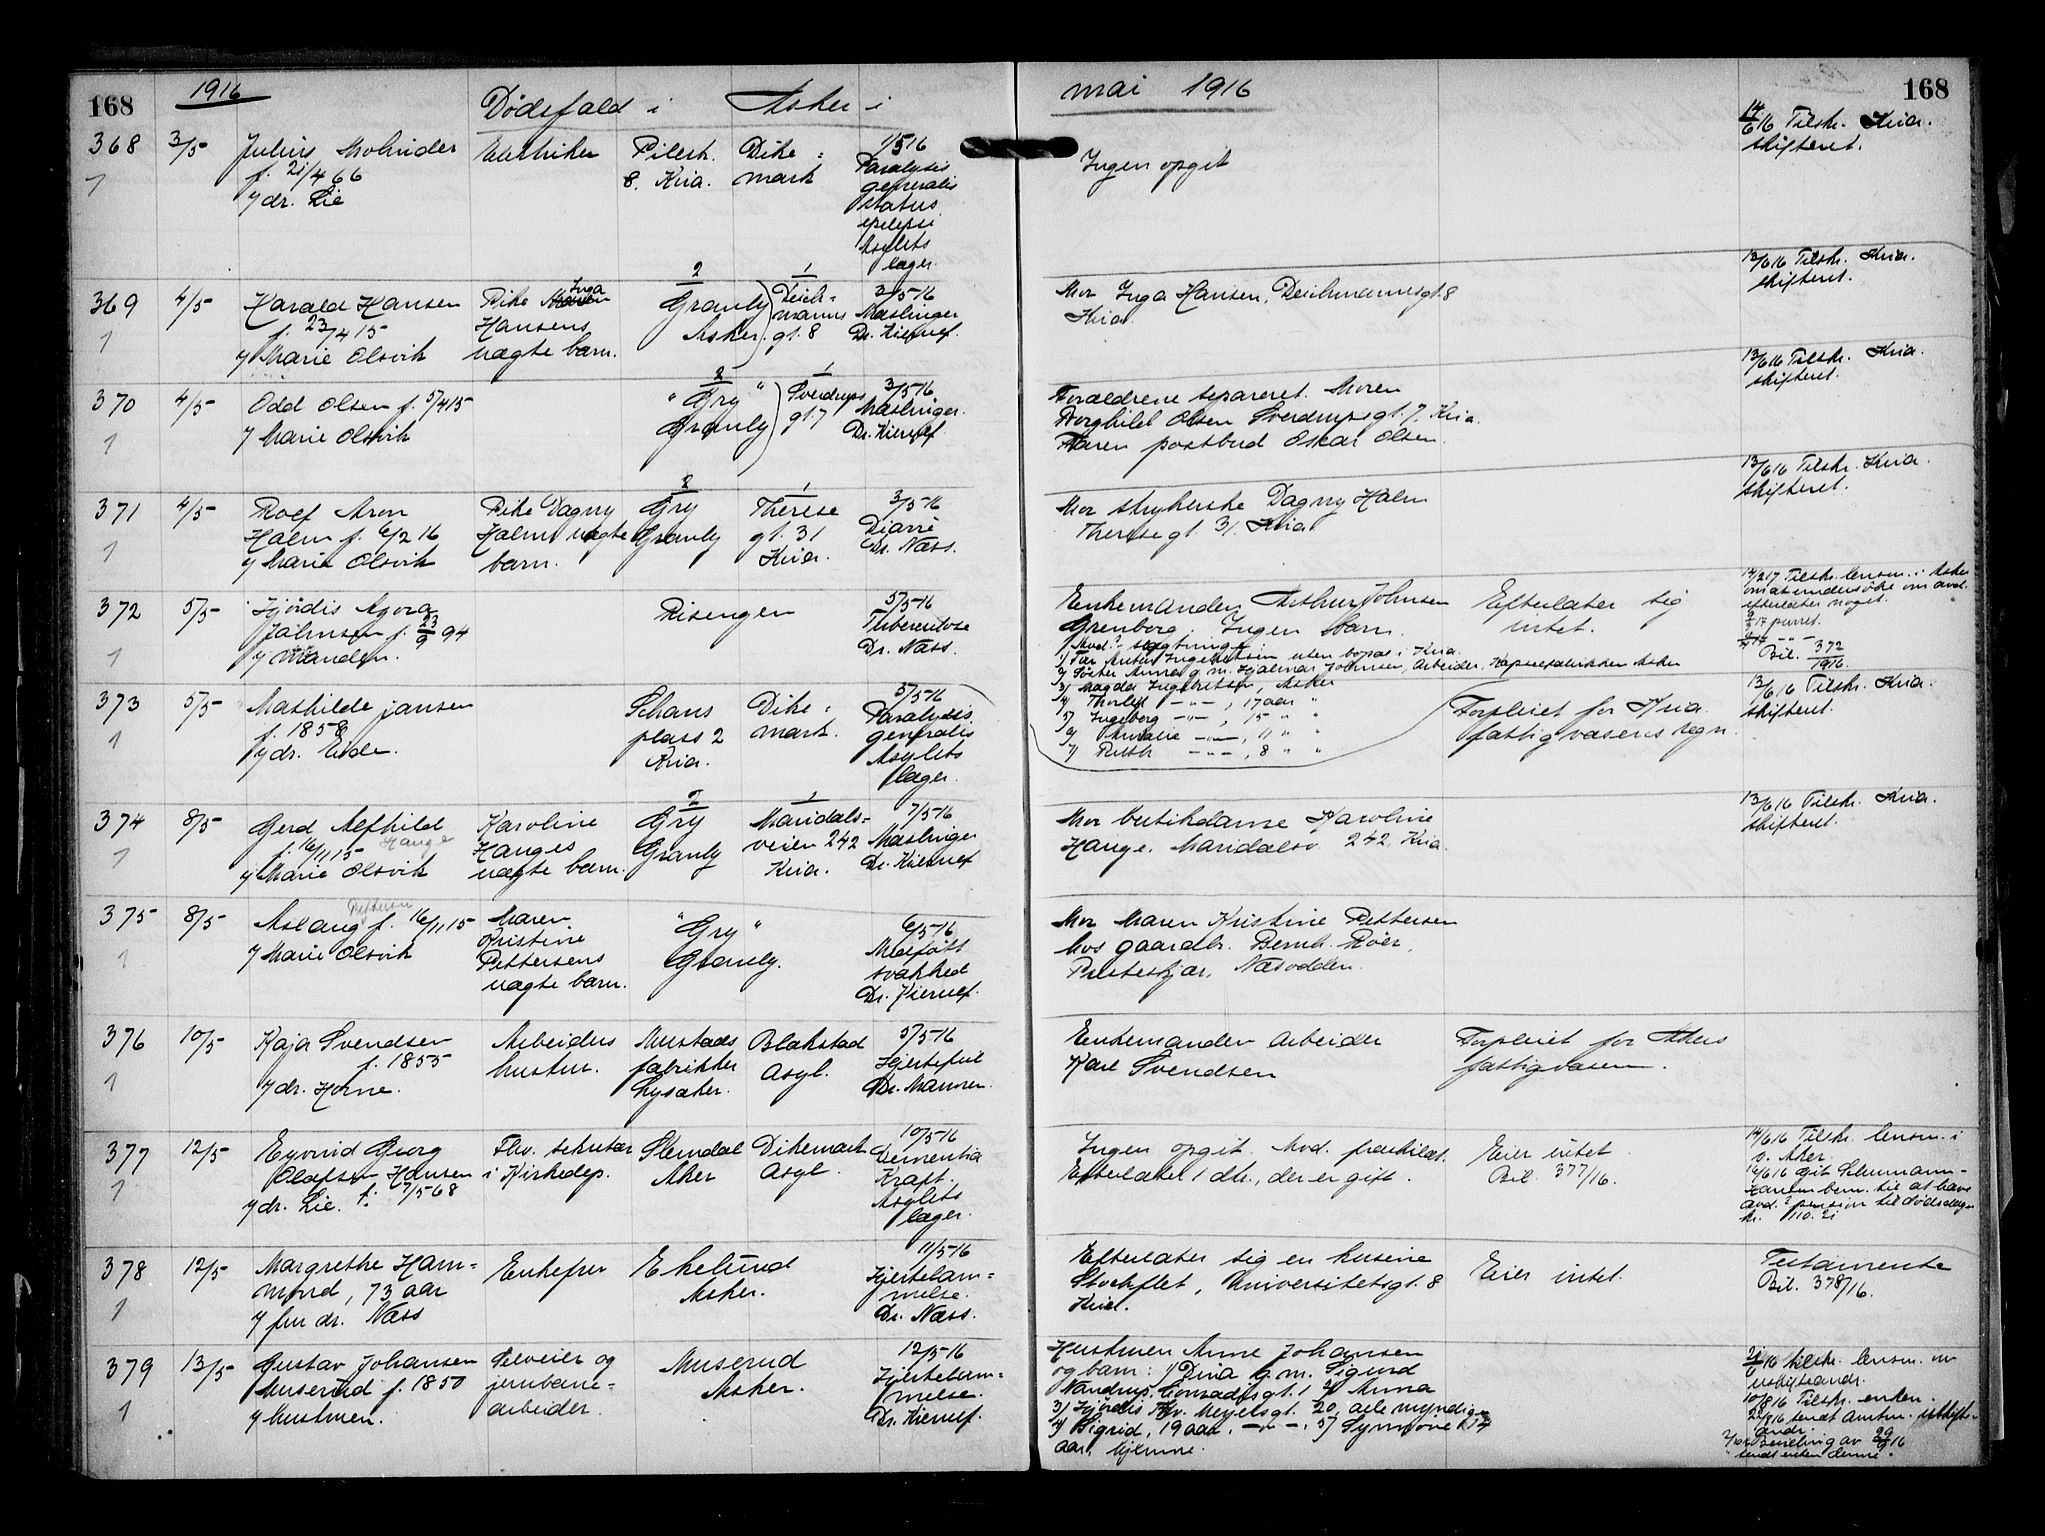 168
1916
Dødsfald i Asker i
mai 1916
168
368
1
3/5
Julius
f. 21/4 66
v/ dr. Lie
Elektriker
Pilestr.
8. Kria.
Dike =
mark
1/5 16
Paralysis
generalis
status
epilepsi
Asylets
læger.
Ingen opgit
14/6 16 Tilskr. Kria.
skifteret.
369
1
4/5
Harald Hansen
f. 23/4 15
v/ Marie Olsvik
Pike Inga
Hansens
uægte barn.
2
Granly
Asker.
1
Deich=
manns
gt. 8
3/5 16
Mæslinger
Dr. Kierulf.
Mor Inga Hansen, Deichmannsgt. 8
Kria.
13/6 16 Tilskr. Kria.
skifteret.
370
1
4/5
Odd Olsen f. 5/4 15
v/ Marie Olsvik
2
" Gry "
Granly
1
Sverdrups
gt. 7
3/5 16
Mæslinger.
Dr. Kierulf
Forældrene separeret. Moren
Borghild Olsen Sverdrupsgt. 7, Kria.
Faren postbud Oskar Olsen.
13/6 16 Tilskr. Kria.
skifteret.
371
1
4/5
Rolf Aron
Halm f. 6/2 16
v/ Marie Olsvik
Pike Dagny
Halms uægte
barn.
2
Gry
Granly
1
Therese
gt. 31
Kria.
3/5 16
Diarré
Dr. Næss.
Mor strykerske Dagny Halm
Theresegt. 31. Kria
13/6 16 Tilskr. Kria.
skifteret.
372
1
5/5
Hjördis Agora
Johnsen f. 23/9 94
v/ Manden.
Risengen
5/5 16
Tuberculose
Dr. Næss.
Enkemanden Arthur Johnsen
Grenborg. Ingen barn.
Avd.s slegtninge:
1) Far Anton Ingebretsen uten bopæl i Kria.
2) Søster Anna g. m. Hjalmar Johnsen, Arbeider, Kapselfabrikken Asker
3) Magda Ingebretsen, Asker
4) Thorleif -"- , 17 aar "
5) Ingeborg -"- , 15 " "
6) Amalie -"- , 11 " "
7) Ruth -"- , 8 " "
Efterlater sig
intet.
14/2 17 Tilskr. lensm. i Asker
om at undersøke om avd.
efterlater noget.
17 purret.
Bil. 372/1916.
373
1
5/5
Mathilde Jansen
f. 1858
v/ dr. Evde.
Schaus
plass 2
Kria.
Dike =
mark.
5/5 16
Paralysis
generalis
Asylets
læger.
Forpleiet for Kria.
fattigvæsens regn.
13/6 16 Tilskr. Kria.
skifteret.
374
1
8/5
Gerd Alfhild
f. 16/11 15 Hauge
v/ Marie Olsvik
Karoline
Hauges
uægte barn.
2
Gry
Granly
1
Maridals=
veien 242
Kria.
7/5 16
Mæslinger
Dr. Kierulf
Mor butikdame Karoline
Hauge. Maridalsv. 242, Kria.
13/6 16 Tilskr. Kria.
skifteret.
375
1
8/5
Pettersen
Aslaug f. 16/11 15
v/ Marie Olsvik
Maren
Kristine
Pettersens
uægte barn.
" Gry "
Granly.
6/5 16
Medfødt
svakhed
Dr. Kierulf.
Mor Maren Kristine Pettersen
hos gaardbr. Bernh. Röer,
Nesodden.
376
1
10/5
Kaja Svendsen
f. 1855
v/ dr. Horne.
Arbeiders
hustru.
Mustads
fabrikker
Lysaker.
Blakstad
Asyl.
5/5 16
Hjertefeil
Enkemanden arbeider
Karl Svendsen
Forpleiet for Akers
fattigvæsen.
377
1
12/5
Eyvind Georg
Olafsen Hansen
v/ dr. Lie. f. 7/5 68
Fhv. sekretær
i Kirkedep.
Stendal
Aker
Dikemark
Asyl
10/5 16
Dementia
Kraft.
Asylets
læger.
Ingen opgit. Avd. fraskilt.
Efterlater 1 dtr., der er gift.
Eier intet
Bil. 377/16.
14/6 16 Tilskr. lensm. i
v. Aker.
16/6 16 git Schumann-
Hansen bem. til at hæve
avd.s pension til dødsdagen
kr. 110.21
378
1
12/5
Margrethe Ham=
mond, 73 aar
v/ fru dr. Næss
Enkefru
Ekelund
Asker.
11/5 16
Hjertelam=
melse.
Dr. Næss.
Efterlater sig en kusine
Stockflet, Universitetsgt. 8
Kria.
Eier intet.
Testamente
Bil. 378/16.
379
1
13/5
Gustav Johansen
Muserud f. 1850
v/ hustruen.
Selveier og
jernbane=
arbeider.
Muserud
Asker.
12/5 16
Hjertelam=
melse.
Dr. Kierulf.
Hustruen Anne Johansen
og barn: 1) Dina g. m. Sigurd
Nandrup, Conradisgt. 1 2) Anna
3) Hjördis Thv. Meyersgt. 20, alle myndige
4) Sigrid, 19 aar, -"- . 5) Synnöve 14
aar, hjemme.
16 tilskr. lensm. om
uskifteandr.
10/8 16 Tilskr. enken.
22/8 16 sendt amtm. uskifte-
andr.
Bevilling av 29/9 16
sendt enken denne.